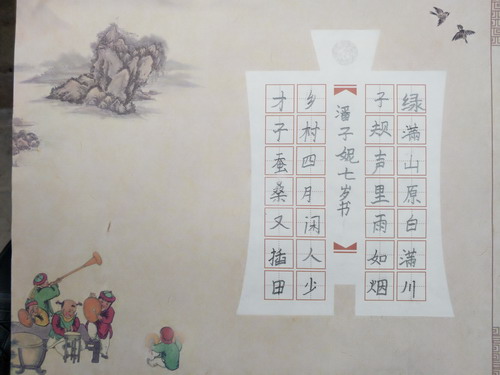 绿满山原白满川
子规声里雨如烟
潘子妮七岁书
乡村四月闲人少
才子蚕桑又插田